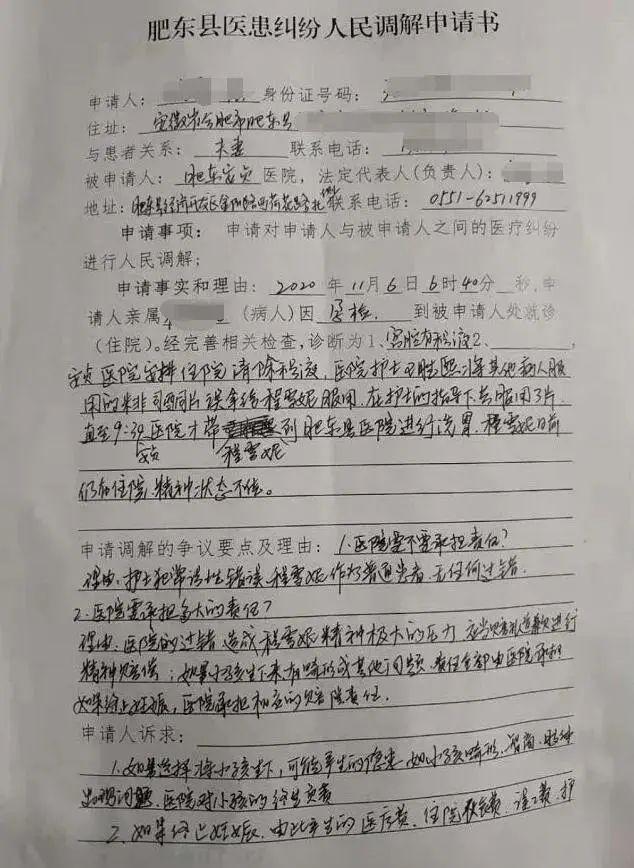 肥东县医患纠纷人民调解申请书
申请人： 身份证号码：
住址：安徽省合肥市肥东县
与患者关系：夫妻 联系电话：
被申请人：肥东安贞医院，法定代表人(负责人)：
地址：肥东县经济开发区金阳路 联系电话：0551-62511999
申请事项：申请对申请人与被申请人之间的医疗纠纷
进行人民调解；
申请事实和理由：2020年11月6日6时40分 秒,申
请人亲属 (病人)因孕检 到被申请人处就诊
(住院)。经完善相关检查,诊断为1、宫腔有积液2、
安贞医院安排住院清除积液，医院护士 将其他病人服
用的米非司酮片误拿给程雪妮服用，在护士的指导下共服用3片
直至9:30医院才带 到肥东县医院进行洗胃，程雪妮目前
安贞 程雪妮
仍在住院，精神状态不佳。
申请调解的争议要点及理由：1.医院需不需承担责任？
理由：护士犯常识性错误，程雪妮作为普通患者，无任何过错.
2.医院需承担多大的责任？
理由：医院的过错造成程雪妮精神极大的压力，应当 进行
精神赔偿；如果小孩生下来有畸形或其他问题，责任全部由医院承担
如果终止妊娠，医院承担相应的赔偿责任.
申请人诉求：
1.如果选择将小孩生下，可能产生的隐患，如小孩畸形、智商、精神
出现问题，医院对小孩的终生负责
2、如果终止妊娠，由此产生的医疗费、住院 费、误工费、护